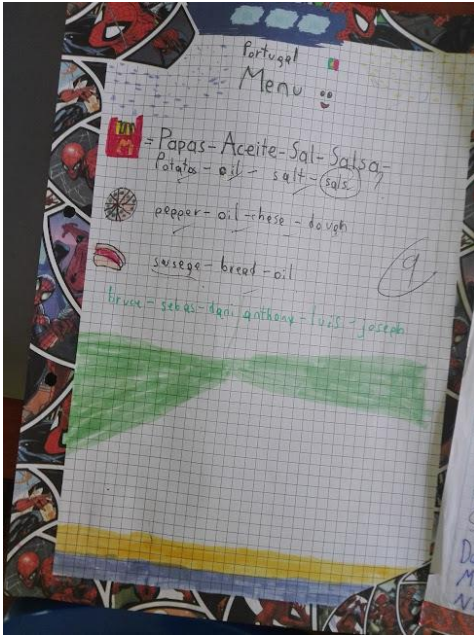 Portugal
Menu
= Papas-Aceite-Sal-Salsa-
Potatos - oil - salt - sals ?
pepper - oil - chese - dough
susege - bread - oil
9
bruce - sebas - dani anthony - luis - joseph